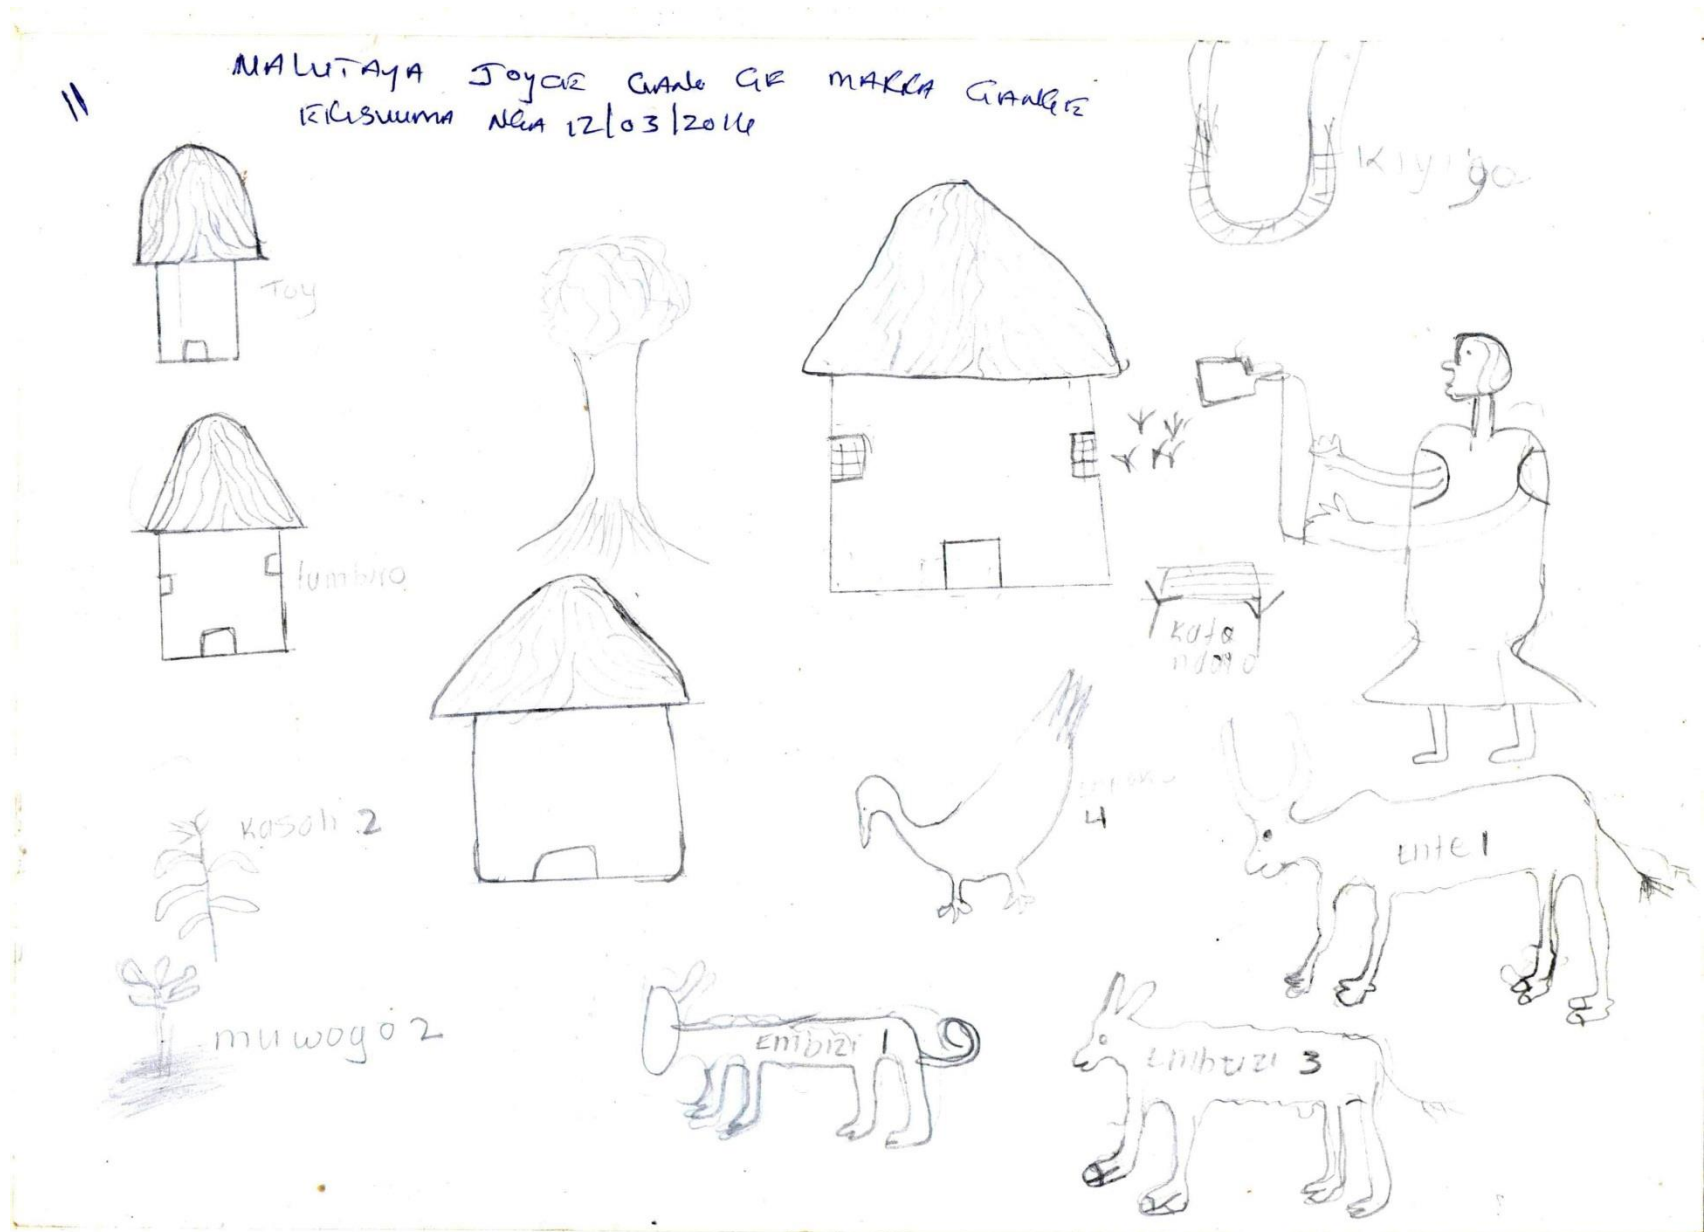 11
MALUTAYA JOYCE GANG GE MAKKA GANGE
EKISUUMA NGA 12/03/2014
Kiyigo
Toy
tumbiro
kata
ndalo
kasoli 2
4
ente 1
muwogo 2
Embizi 1
Embuzi 3